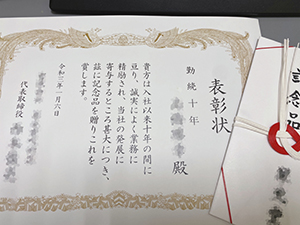 表彰状
勤続十年
殿
貴方は入社以来十年の間に
亘り、誠実によく業務に
精励され、当社の発展に
寄与するところ甚大につき、
茲に記念品を贈りこれを
賞します。
令和三年一月六日
代表取締役
記念品